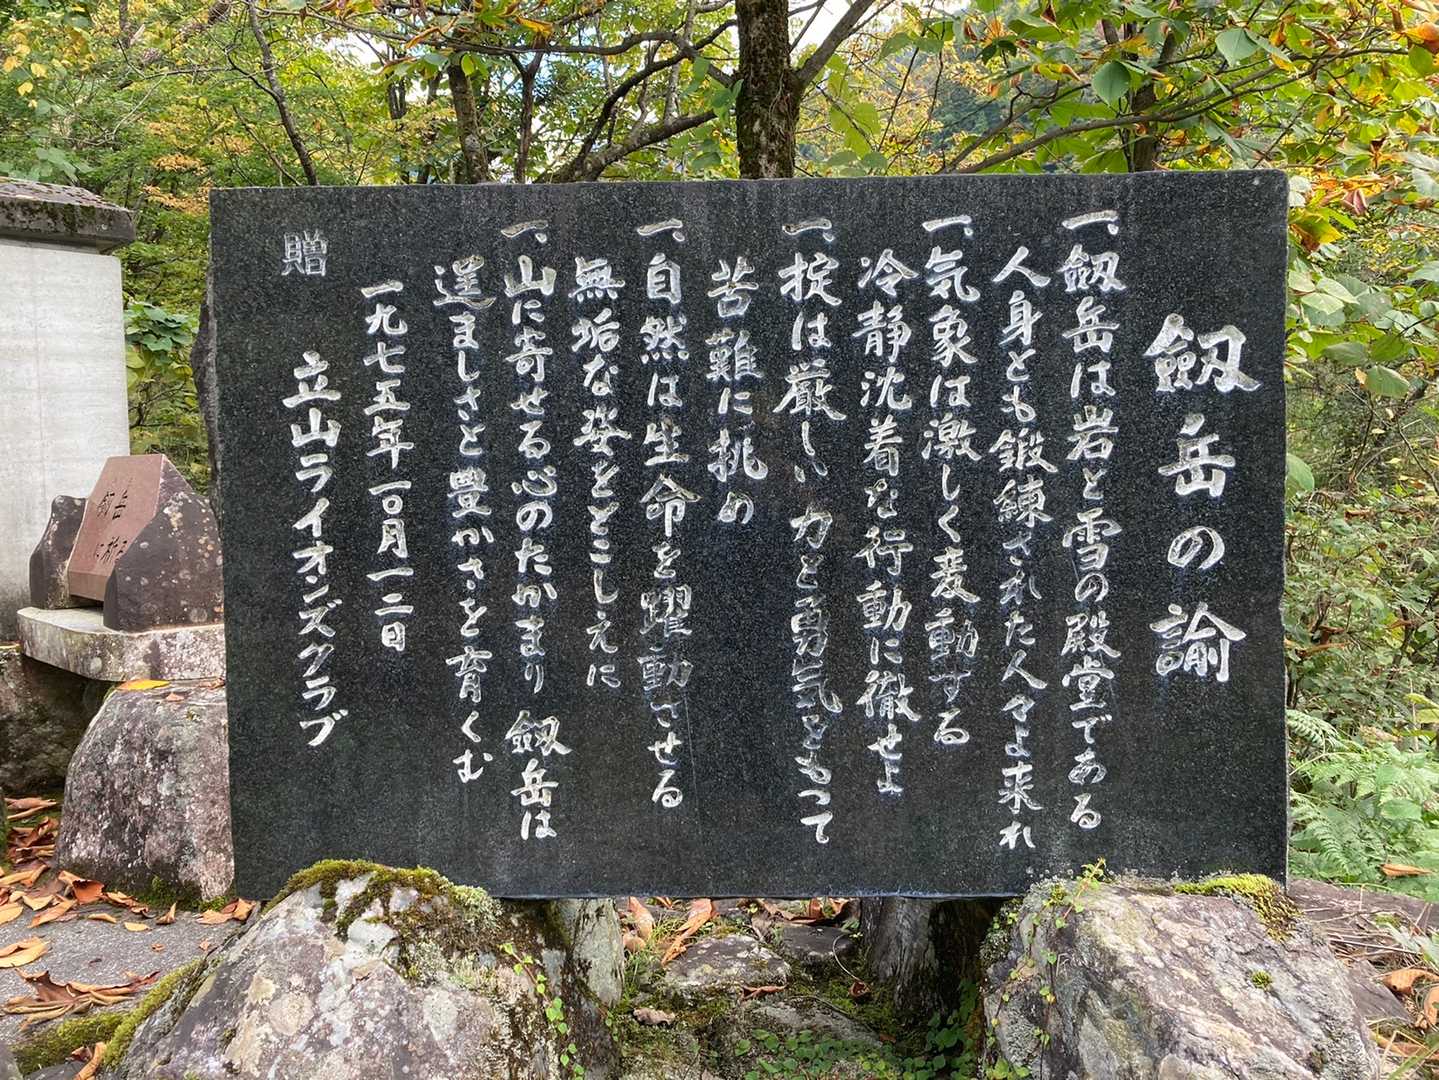 劔岳の諭
一、劔岳は岩と雪の殿堂である
人身とも鍛練された人々よ来れ
一、気象は激しく変動する
冷静沈着な行動に徹せよ
一、掟は厳しい 力と勇気をもつて
苦難に挑め
一、自然は生命を躍動させる
無垢な姿をとこしえに
一、山に寄せる心のたかまり 劔岳は
逞ましさと豊かさを育くむ
一九七五年一〇月一二日
贈 立山ライオンズクラブ